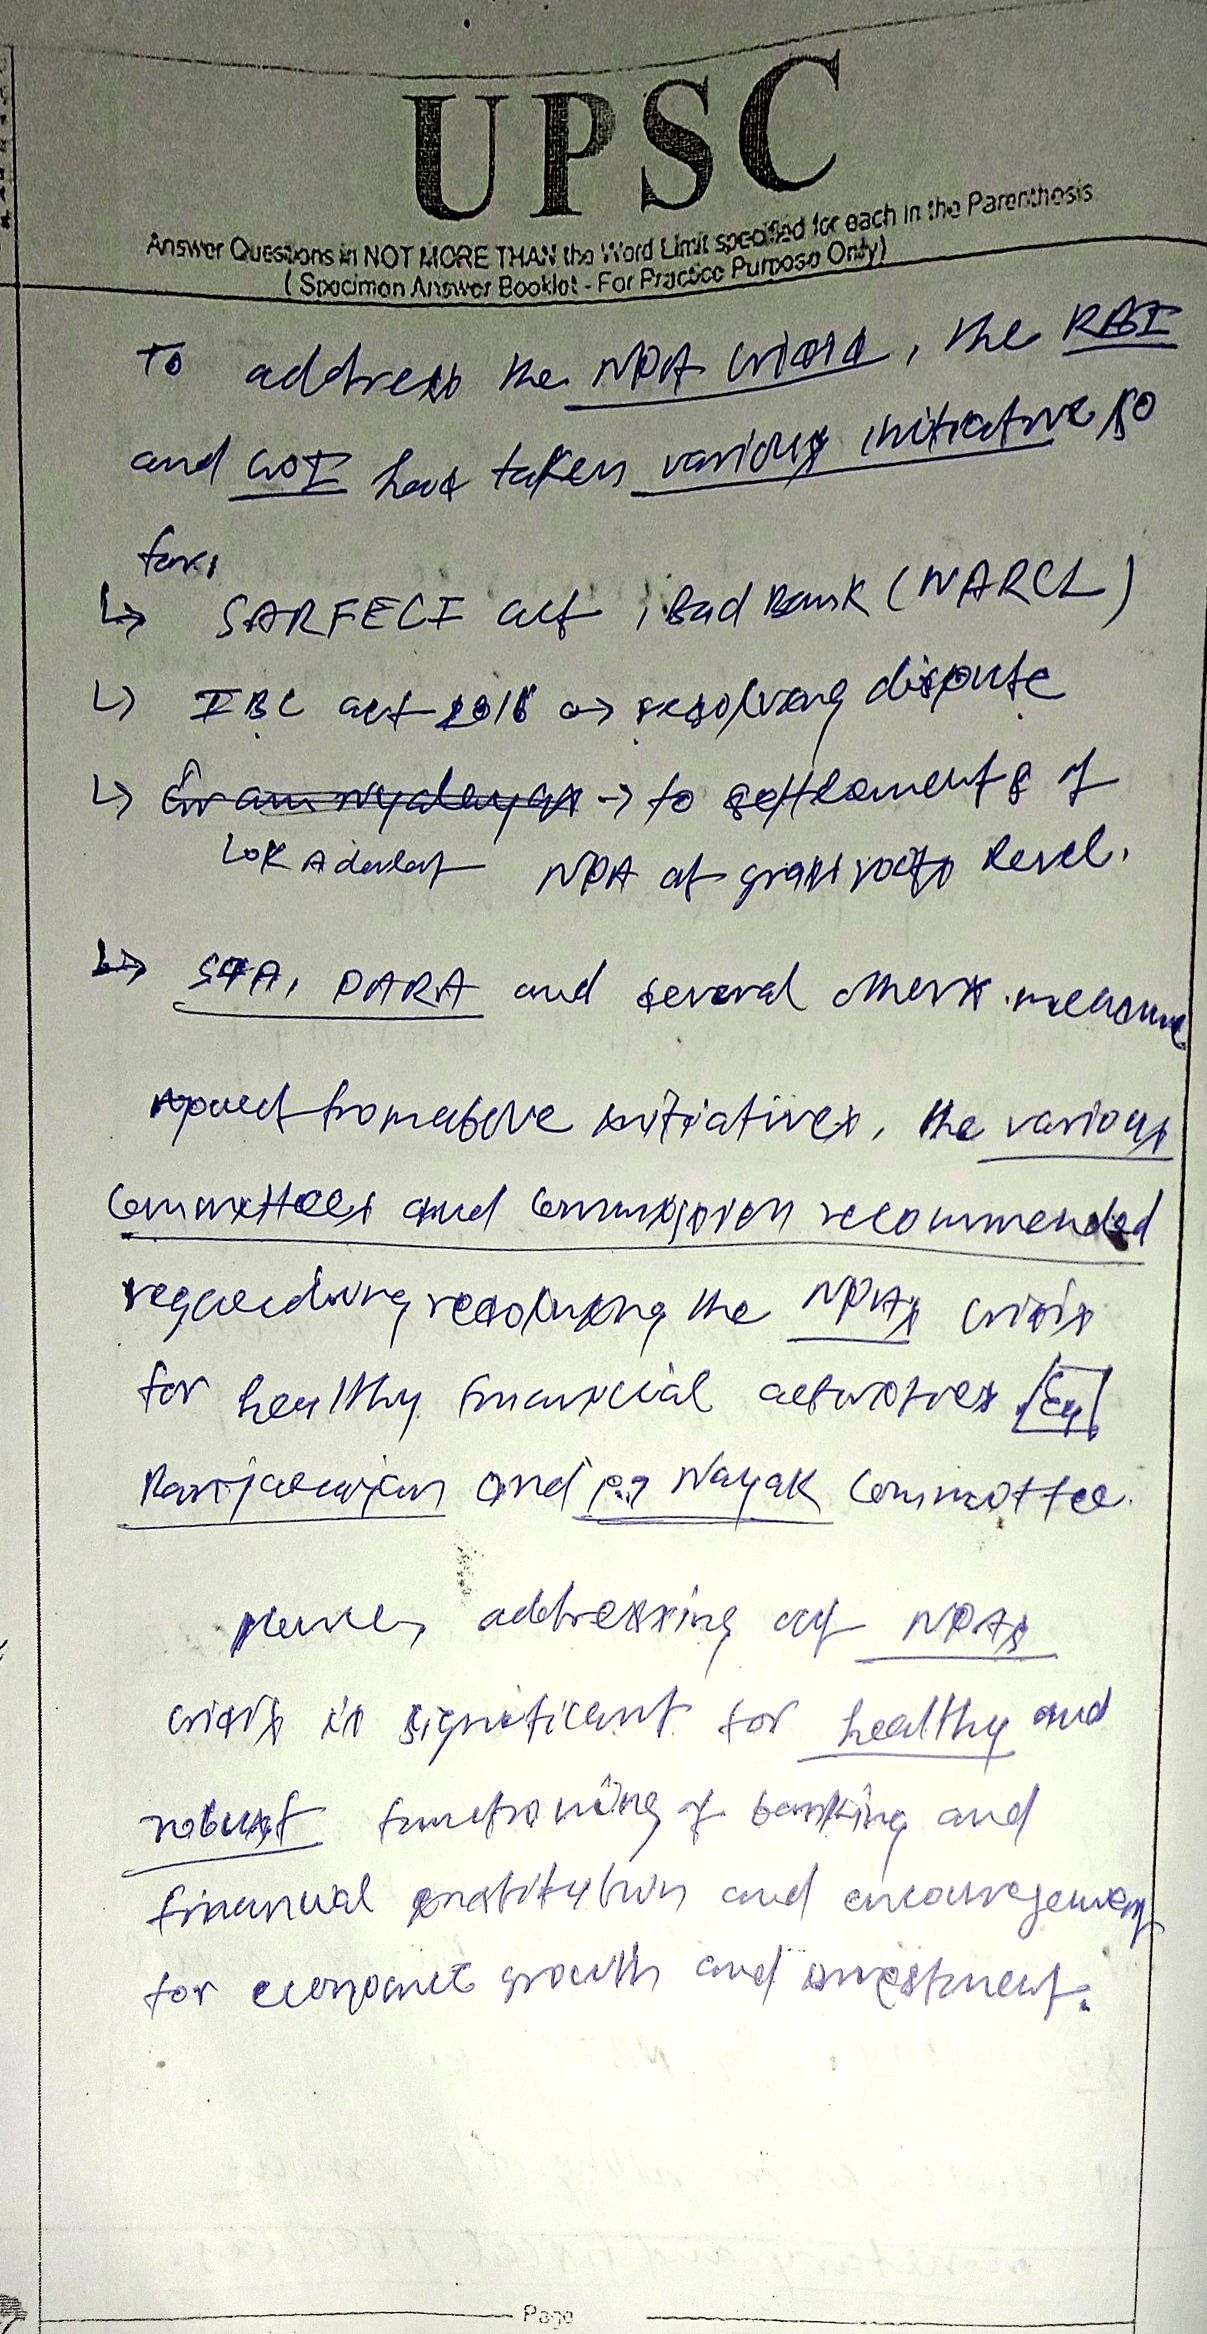 UPSC
Answer Questions in NOT MORE THAN the Word Limit specified for each in the Parenthesis
( Specimen Answer Booklet - For Practice Purpose Only)
To address the NPA crisis, the RBI
and GOI has taken various initiative so
far,
↳ SARFECI act, Bad Bank (NARCL)
↳ IBC act 2016 → resolving dispute
↳ Gram nyalayas → to settlements of
Lok Adalat NPA at grass roots level.
↳ PARA and several others measure
Apart from above initiatives, the various
Committees and Commission recommended
regarding resolving the NPAs crisis
for healthy financial activities [Eg]
and P.J Nayak Committee.
Hence, addressing of NPAs
crisis is significant for healthy and
robust functioning of banking and
financial institution and encouragement
for economic growth and investment.
Page